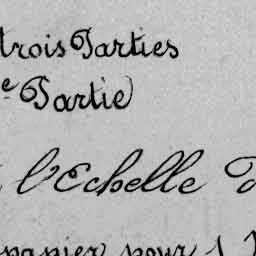 trois Parties
e Partie
l'Echelle
panier pour 1